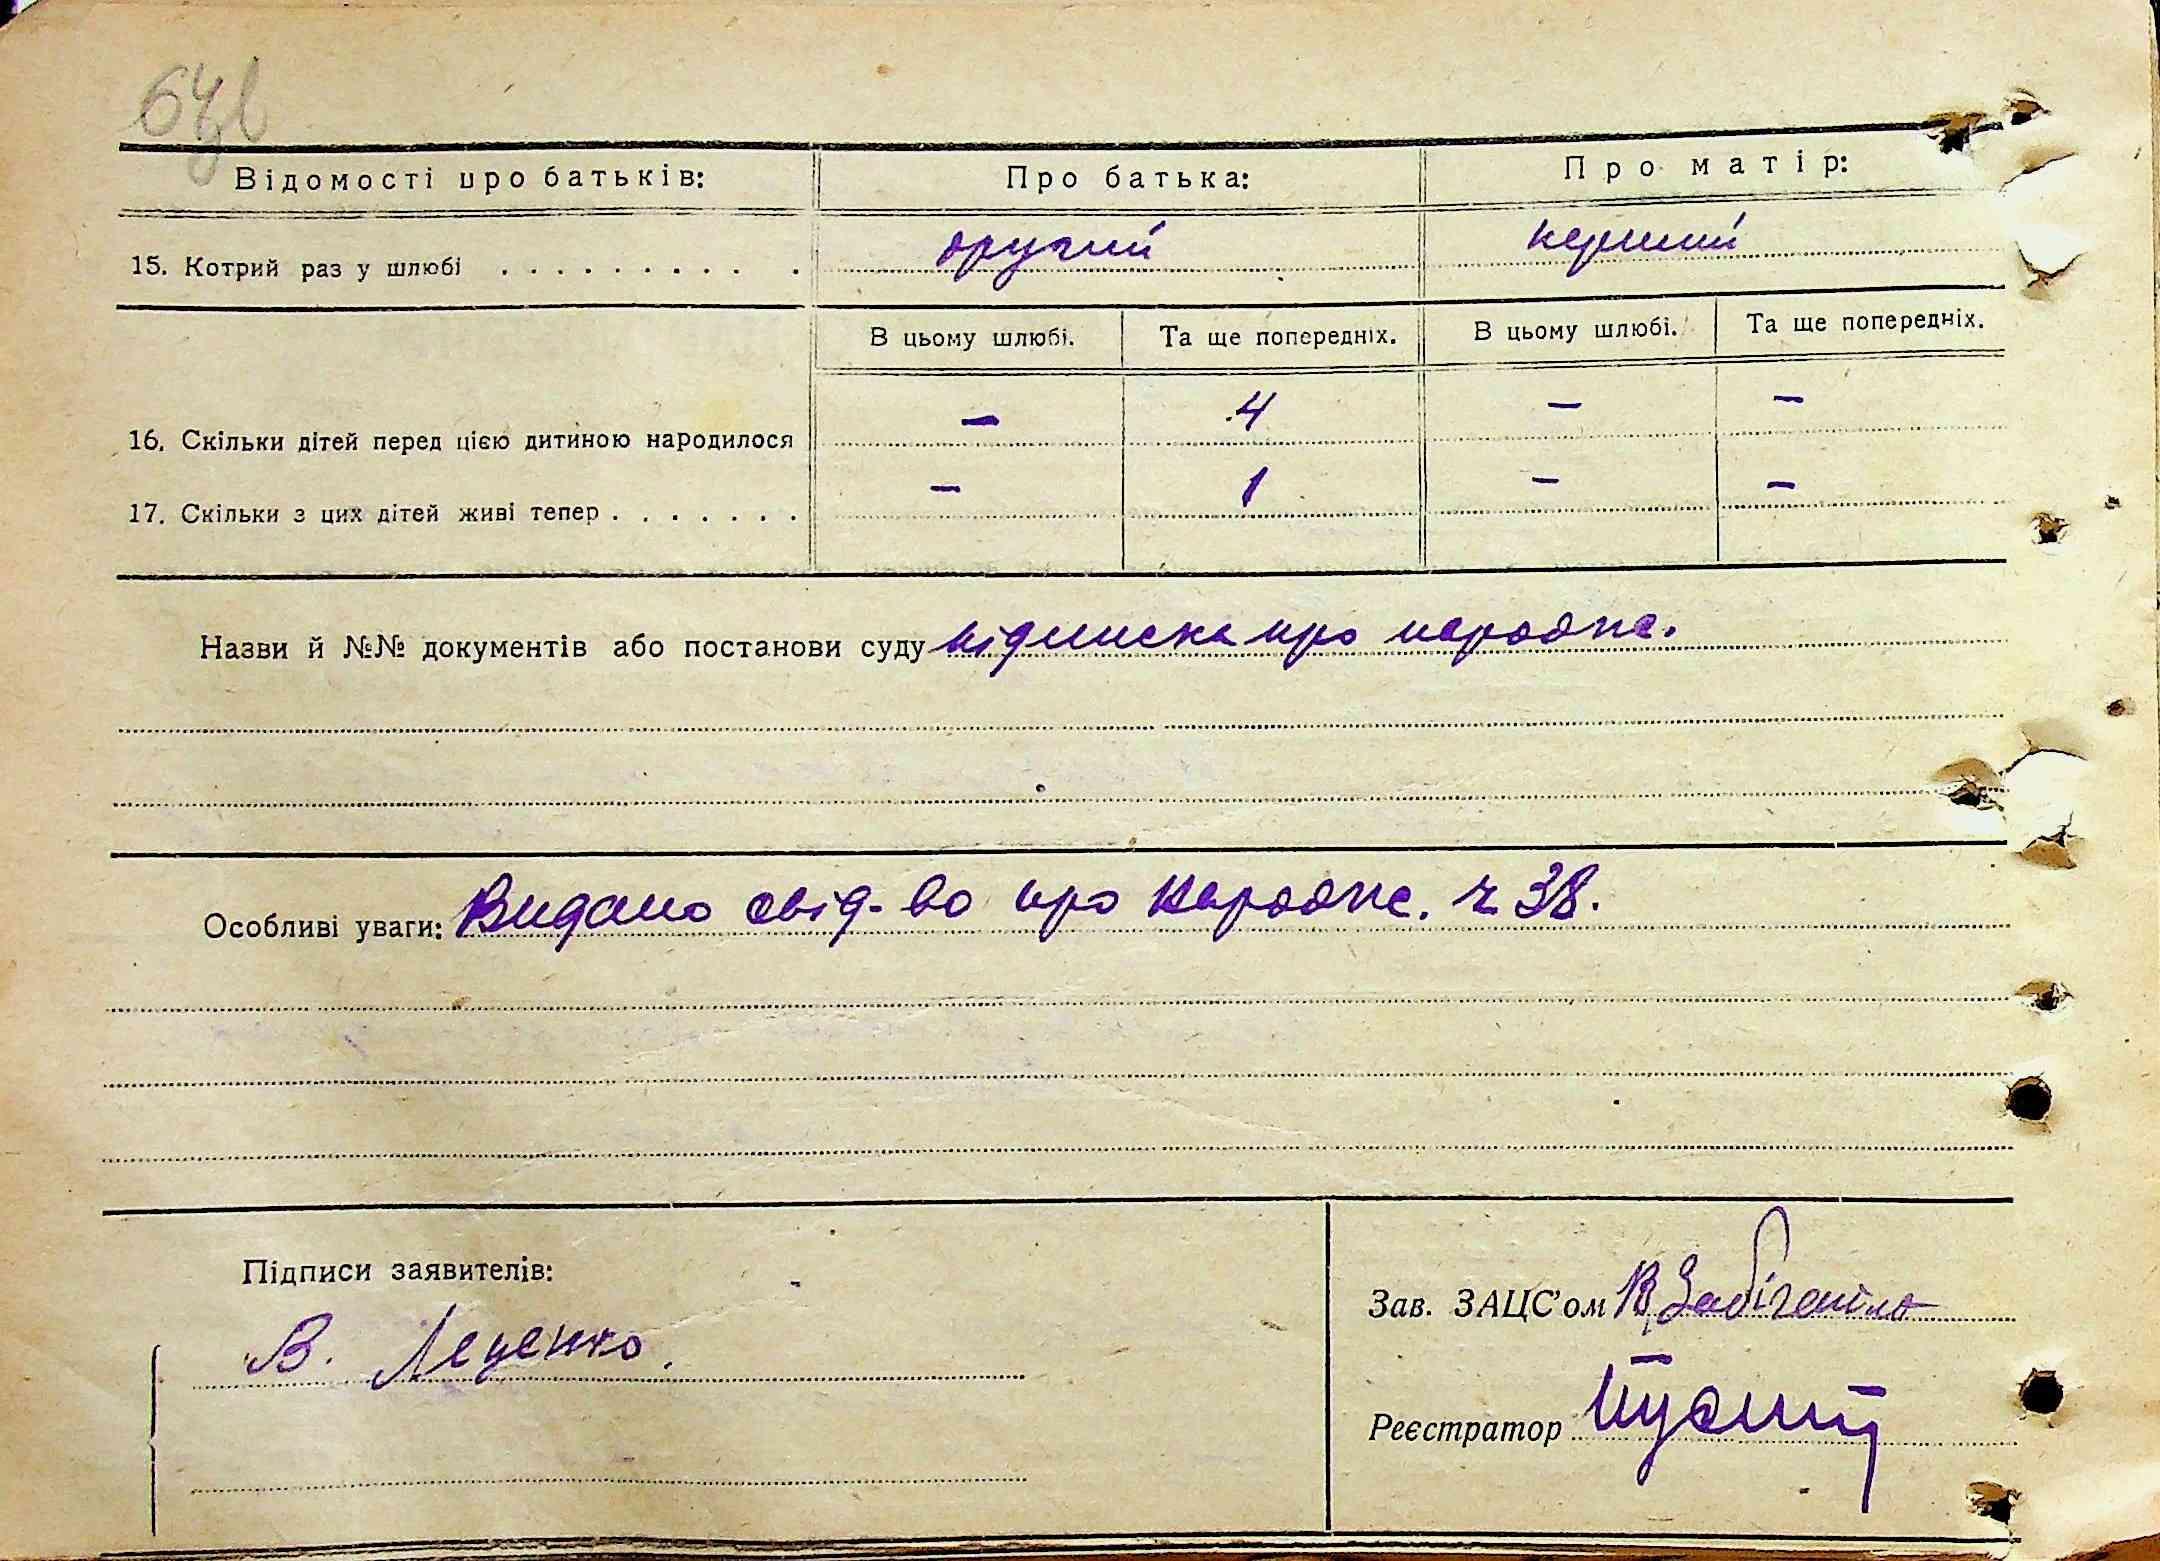 Відомості про батьків: Про батька: Про матір:
15. Котрий раз у шлюбі . . . . . . . . . . другий перший
В цьому шлюбі. Та ще попередніх. В цьому шлюбі. Та ще попередніх.
16. Скільки дітей перед цією дитиною народилося – 4 – –
17. Скільки з цих дітей живі тепер . . . . . . . – 1 – –
Назви й №№ документів або постанови суду підписка про народж.
Особливі уваги: Видано свід-во про народж. ч 38.
Підписи заявителів:
В. Леценко.
Зав. ЗАЦС'ом
Реєстратор